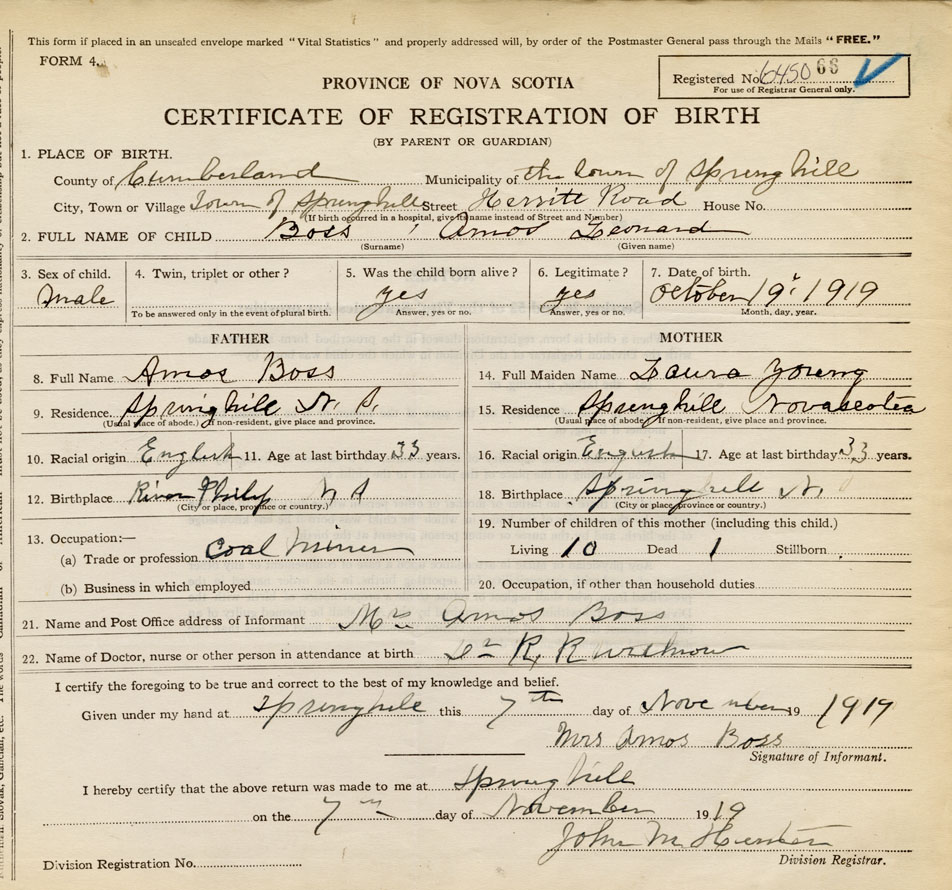 This form if placed in an unsealed envelope marked "Vital Statistics" and properly addressed will, by order of the Postmaster General pass through the Mails "FREE."
FORM 4.
Registered No. 6450 66
For use of Registrar General only.
PROVINCE OF NOVA SCOTIA
CERTIFICATE OF REGISTRATION OF BIRTH
(BY PARENT OR GUARDIAN)
1. PLACE OF BIRTH.
County of Cumberland Municipality of the town of Springhill
City, Town or Village Town of Springhill Street Herritt Road House No.
(If birth occurred in a hospital, give its name instead of Street and Number)
2. FULL NAME OF CHILD Boss, Amos Leonard
(Surname) (Given name)
3. Sex of child. 4. Twin, triplet or other? 5. Was the child born alive? 6. Legitimate? 7. Date of birth.
Male yes yes October 19, 1919
To be answered only in the event of plural birth. Answer, yes or no. Answer, yes or no. Month, day, year.
FATHER MOTHER
8. Full Name Amos Boss 14. Full Maiden Name Laura Young
9. Residence. Springhill N. S. 15. Residence Springhill Novascotia
(Usual place of abode.) If non-resident, give place and province. (Usual place of abode.) If non-resident, give place and province.
10. Racial origin English 11. Age at last birthday 33 years. 16. Racial origin English 17. Age at last birthday 33 years.
12. Birthplace River Philip N S 18. Birthplace Springhill N.
(City or place, province or country.) (City or place, province or country.)
13. Occupation:— 19. Number of children of this mother (including this child.)
(a) Trade or profession Coal Miner Living 10 Dead 1 Stillborn
(b) Business in which employed 20. Occupation, if other than household duties
21. Name and Post Office address of Informant Mrs Amos Boss
22. Name of Doctor, nurse or other person in attendance at birth Dr R. R Withrow
I certify the foregoing to be true and correct to the best of my knowledge and belief.
Given under my hand at Springhill this 7th day of November 19 1919
Mrs Amos Boss
Signature of Informant.
I hereby certify that the above return was made to me at Springhill
on the 7th day of November 1919
John M. Hunter
Division Registration No. Division Registrar.